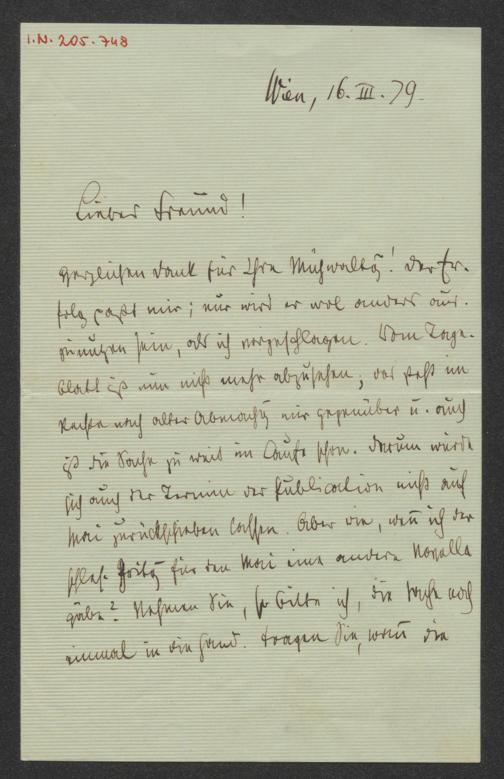 I.N. 205.748
Wien, 16. III. 79.
Lieber Freund!
Herzlichen Dank für Ihre Mühwaltg! Der Er-
folg paßt mir; nur wird er wol anders aus-
zunutzen sein, als ich vorgeschlagen. Vom Tage-
blatt ist nun nicht mehr abzusehen; das steht im
Rechte nach alter Abmachg mir gegenüber u. auch
ist die Sache zu weit im Laufe schon. Darum würde
sich auch der Termin der Publication nicht auf
Mai zurückschieben lassen. Aber wie, wenn ich der
schles. für den Mai eine andere Novelle
gäbe? Nehmen Sie, so bitte ich, die Sache noch
einmal in die Hand. Fragen Sie, wenn die